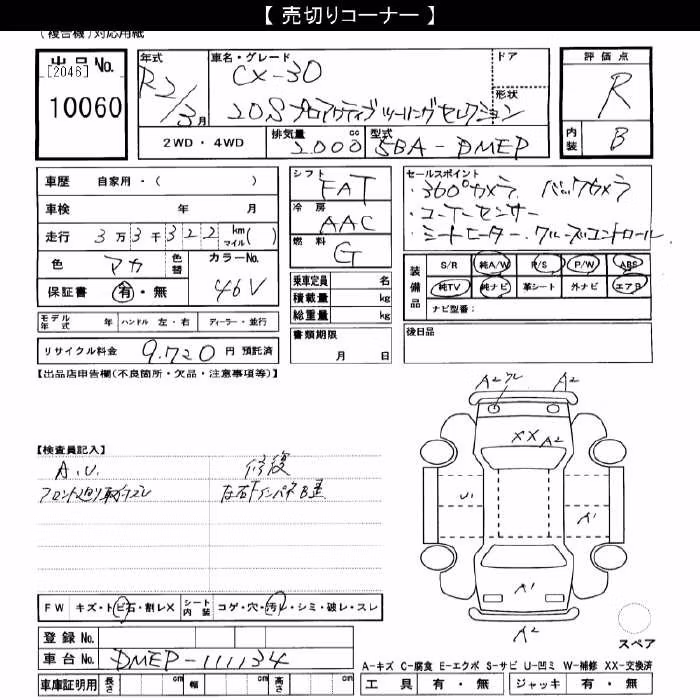 【 売切りコーナー 】
(複合機)対応用紙
出品No.
[2046]
10060
年式
R2/3月
車名・グレード
CX-30
20S プロアクティブツーリングセレクション
ドア
形状
評価点
R
内装
B
2WD・4WD
排気量
2000 cc
型式
5BA-DMEP
車歴 自家用・( )
車検 年 月
走行 3万3千322 km マイル( )
色 マカ 色替 カラーNo. 46V
保証書 有・無
シフト
FAT
冷房
AAC
燃料
G
乗車定員 名
積載量 kg
総重量 kg
セールスポイント
・360°カメラ、バックカメラ
・コーナーセンサー
・シートヒーター、クルーズコントロール
装備品
S/R 純A/W P/S P/W ABS
純TV 純ナビ 革シート 外ナビ エアB
ナビ型番:
モデル年式 年 ハンドル 左・右 ディーラー・並行
リサイクル料金 9,720 円 預託済
書類期限
月 日
後日品
【出品店申告欄(不良箇所・欠品・注意事項等)】
A2 ワレ A2
XX A2
【検査員記入】
A.U. 修復
フロント廻り取付ズレ 左右インパネB歪
U1
A1
A1
A2
FW キズ・トビ石・割レX シート内装 コゲ・穴・汚レ・シミ・破レ・スレ
スペア
登録No.
車台No. DMEP-111134
A-キズ C-腐食 E-エクボ S-サビ U-凹ミ W-補修 XX-交換済
車庫証明用 長さ cm 幅 cm 高さ cm
工具 有・無 ジャッキ 有・無